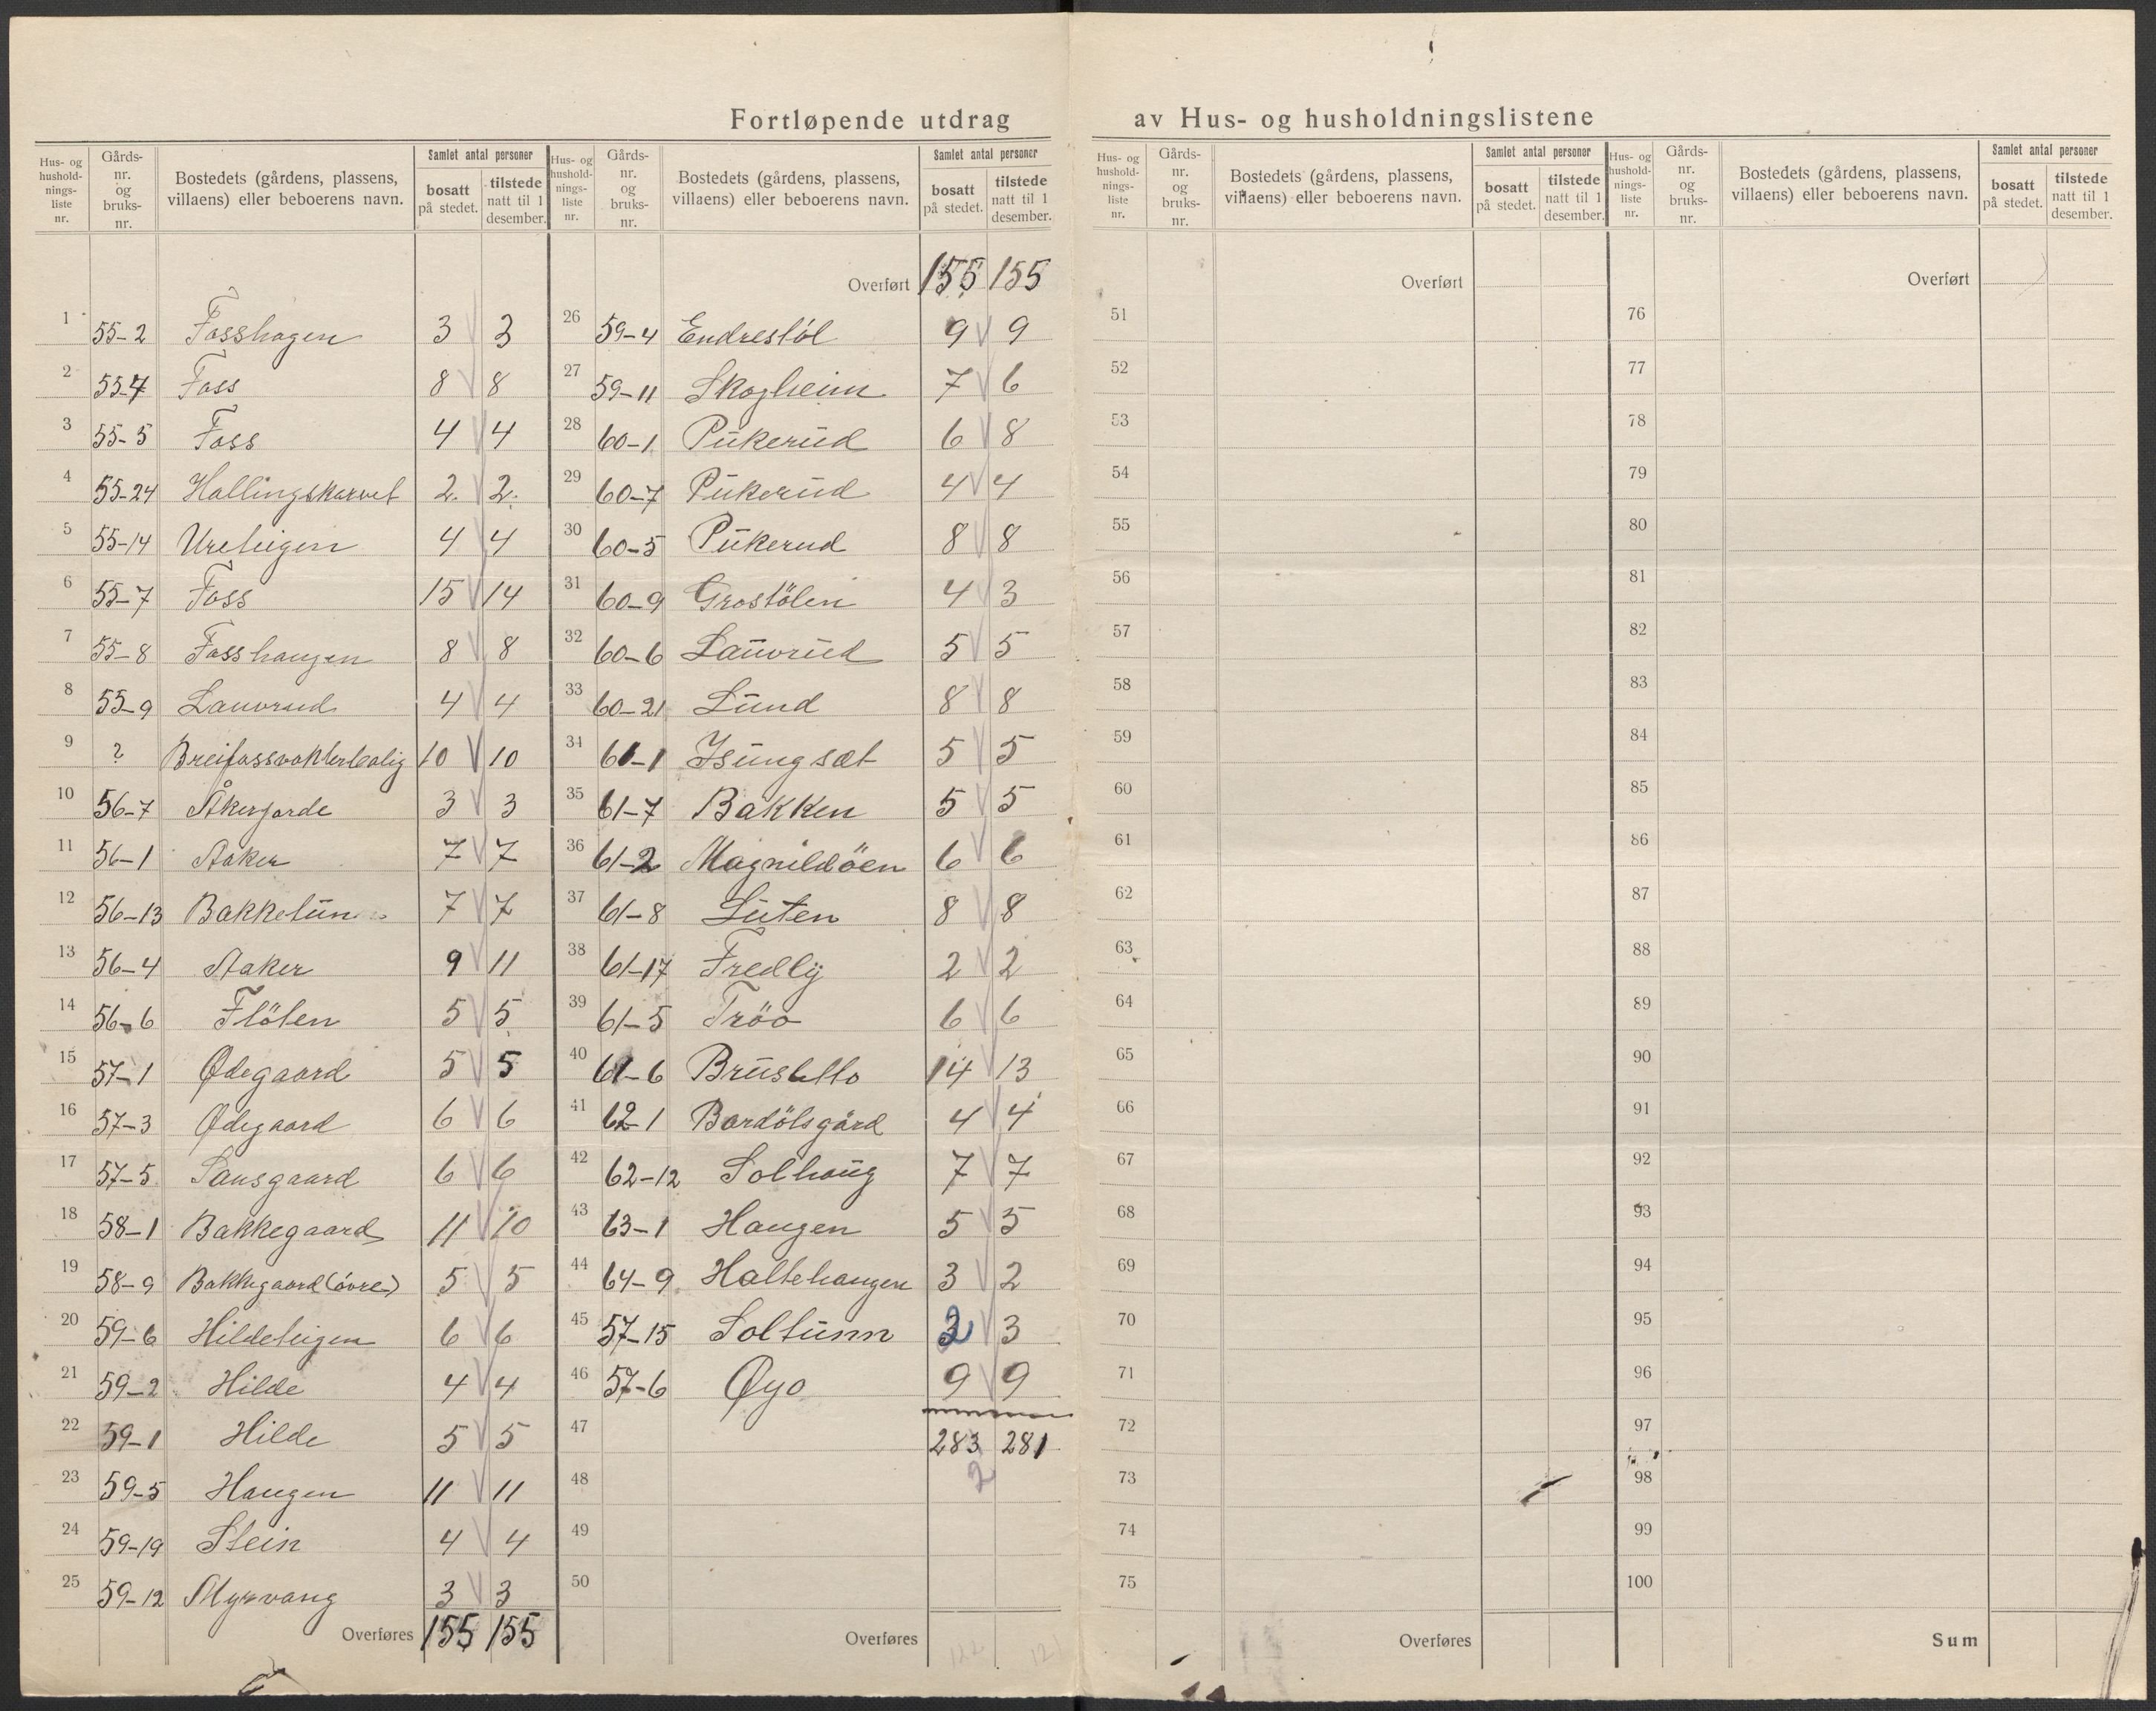 Fortløpende utdrag av Hus- og husholdningslistene
Hus- og husholdningsliste nr. Gårds-nr. og bruks-nr. Bostedets (gårdens, plassens, villaens) eller beboerens navn. Samlet antal personer bosatt på stedet. tilstede natt til 1 desember.
1 55-2 Fosshagen 3 3
2 55-4 Foss 8 8
3 55-5 Foss 4 4
4 55-24 Hallingskarvet 2. 2.
5 55-14 Ureteigen 4 4
6 55-7 Foss 15 14
7 55-8 Fosshaugen 8 8
8 55-9 Lauvrud 4 4
9 ? Breifossvokterbolig 10 10
10 56-7 Åkerjorde 3 3
11 56-1 Aaker 7 7
12 56-13 Bakketun 7 7
13 56-4 Aaker 9 11
14 56-6 Flöten 5 5
15 57-1 Ødegaard 5 5
16 57-3 Ødegaard 6 6
17 57-5 Sausgaard 6 6
18 58-1 Bakkegaard 11 10
19 58-9 Bakkegaard (övre) 5 5
20 59-6 Hildeteigen 6 6
21 59-2 Hilde 4 4
22 59-1 Hilde 5 5
23 59-5 Haugen 11 11
24 59-19 Stein 4 4
25 59-12 Myrvang 3 3
Overføres 155 155
Hus- og husholdningsliste nr. Gårds-nr. og bruks-nr. Bostedets (gårdens, plassens, villaens) eller beboerens navn. Samlet antal personer bosatt på stedet. tilstede natt til 1 desember.
Overført 155 155
26 59-4 Endrestöl 9 9
27 59-11 Skogheim 7 6
28 60-1 Pukerud 6 8
29 60-7 Pukerud 4 4
30 60-5 Pukerud 8 8
31 60-9 Grostölen 4 3
32 60-6 Lauvrud 5 5
33 60-21 Lund 8 8
34 61-1 Isungset 5 5
35 61-7 Bakken 5 5
36 61-2 Magnildöen 6 6
37 61-8 Luten 8 8
38 61-17 Fredly 2 2
39 61-5 Tröo 6 6
40 61-6 Brusletto 14 13
41 62-1 Bardölsgård 4 4
42 62-12 Solhaug 7 7
43 63-1 Haugen 5 5
44 64-9 Haltehaugen 3 2
45 57-15 Soltunn 2 3
46 57-6 Øyo 9 9
47 283 281
48 2
49
50
Overføres
Hus- og husholdningsliste nr. Gårds-nr. og bruks-nr. Bostedets (gårdens, plassens, villaens) eller beboerens navn. Samlet antal personer bosatt på stedet. tilstede natt til 1 desember.
Overført
51
52
53
54
55
56
57
58
59
60
61
62
63
64
65
66
67
68
69
70
71
72
73
74
75
Overføres
Hus- og husholdningsliste nr. Gårds-nr. og bruks-nr. Bostedets (gårdens, plassens, villaens) eller beboerens navn. Samlet antal personer bosatt på stedet. tilstede natt til 1 desember.
Overført
76
77
78
79
80
81
82
83
84
85
86
87
88
89
90
91
92
93
94
95
96
97
98
99
100
Sum